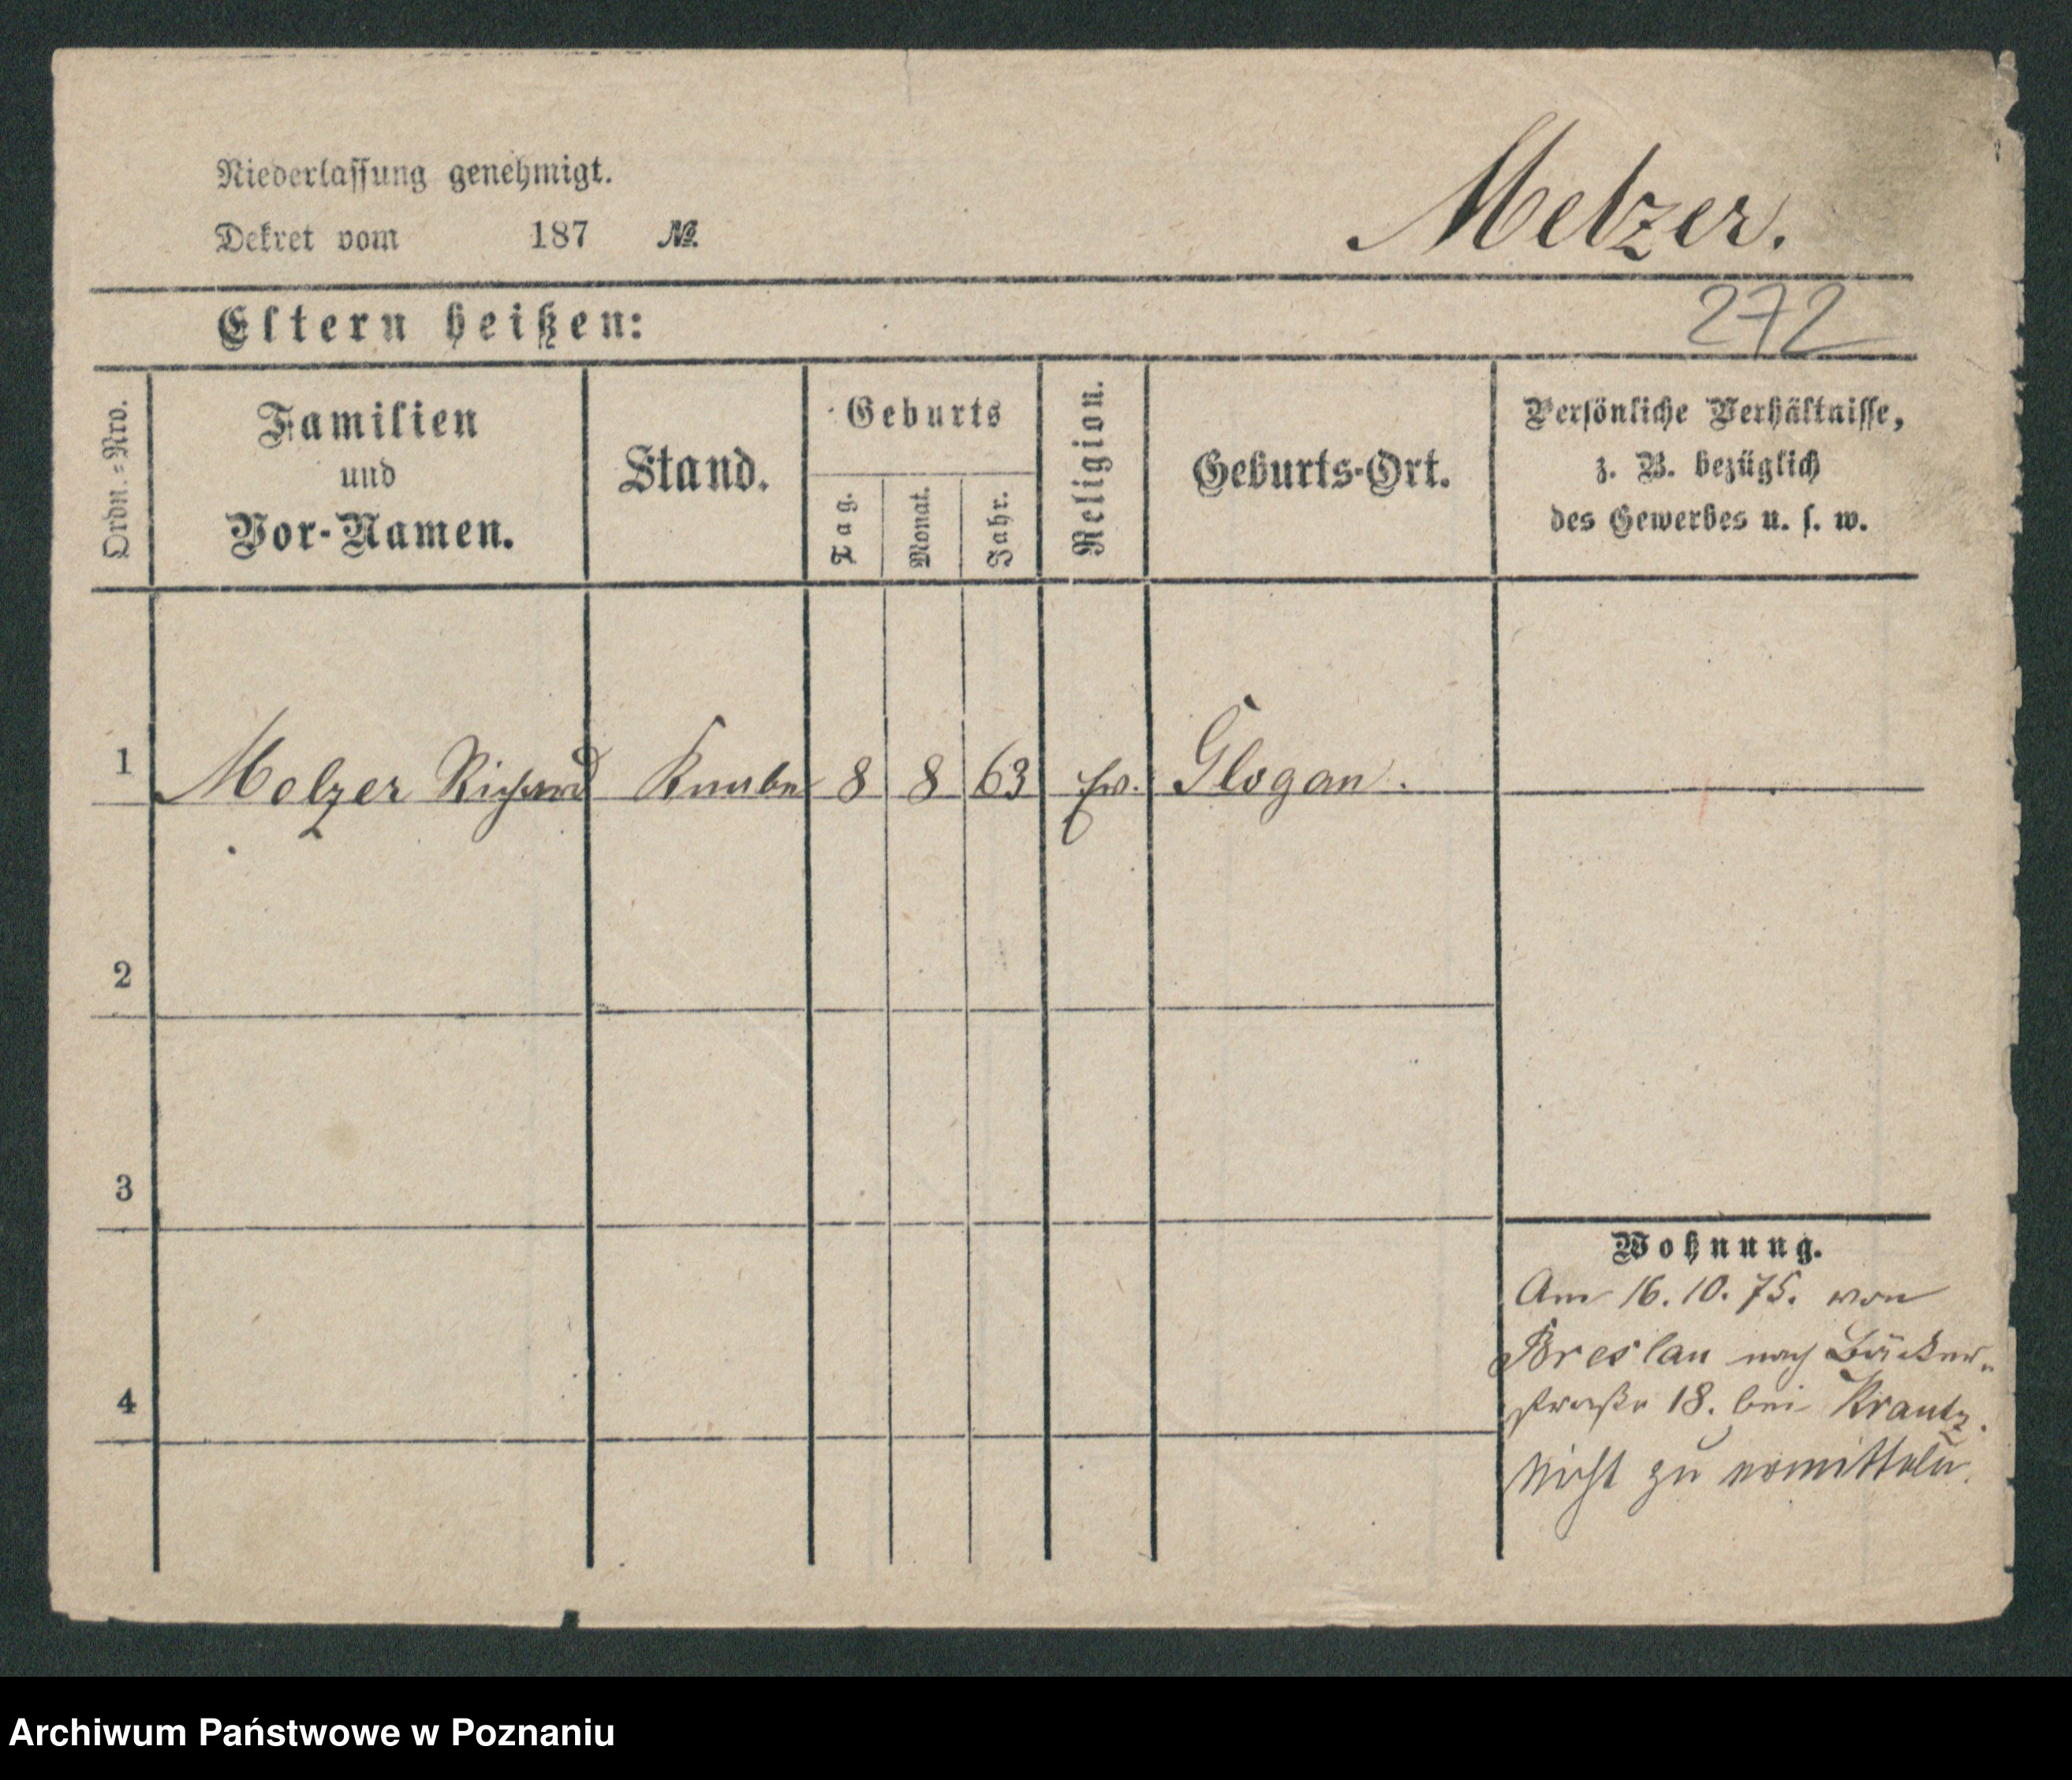 Niederlassung genehmigt.
Dekret vom 187 №
Melzer.
Eltern heißen:
272
Ordn.=Nro.
Familien
und
Vor-Namen.
Stand.
Geburts
Tag.
Monat.
Jahr.
Religion.
Geburts-Ort.
Persönliche Verhältnisse,
z. B. bezüglich
des Gewerbes u. s. w.
1 Melzer Richard Knabe 8 8 63 ev. Glogau.
2
3
4
Wohnung.
Am 16. 10. 75. von
Breslau nach Bäcker-
straße 18. bei Krantz.
Nicht zu ermitteln.
Archiwum Państwowe w Poznaniu